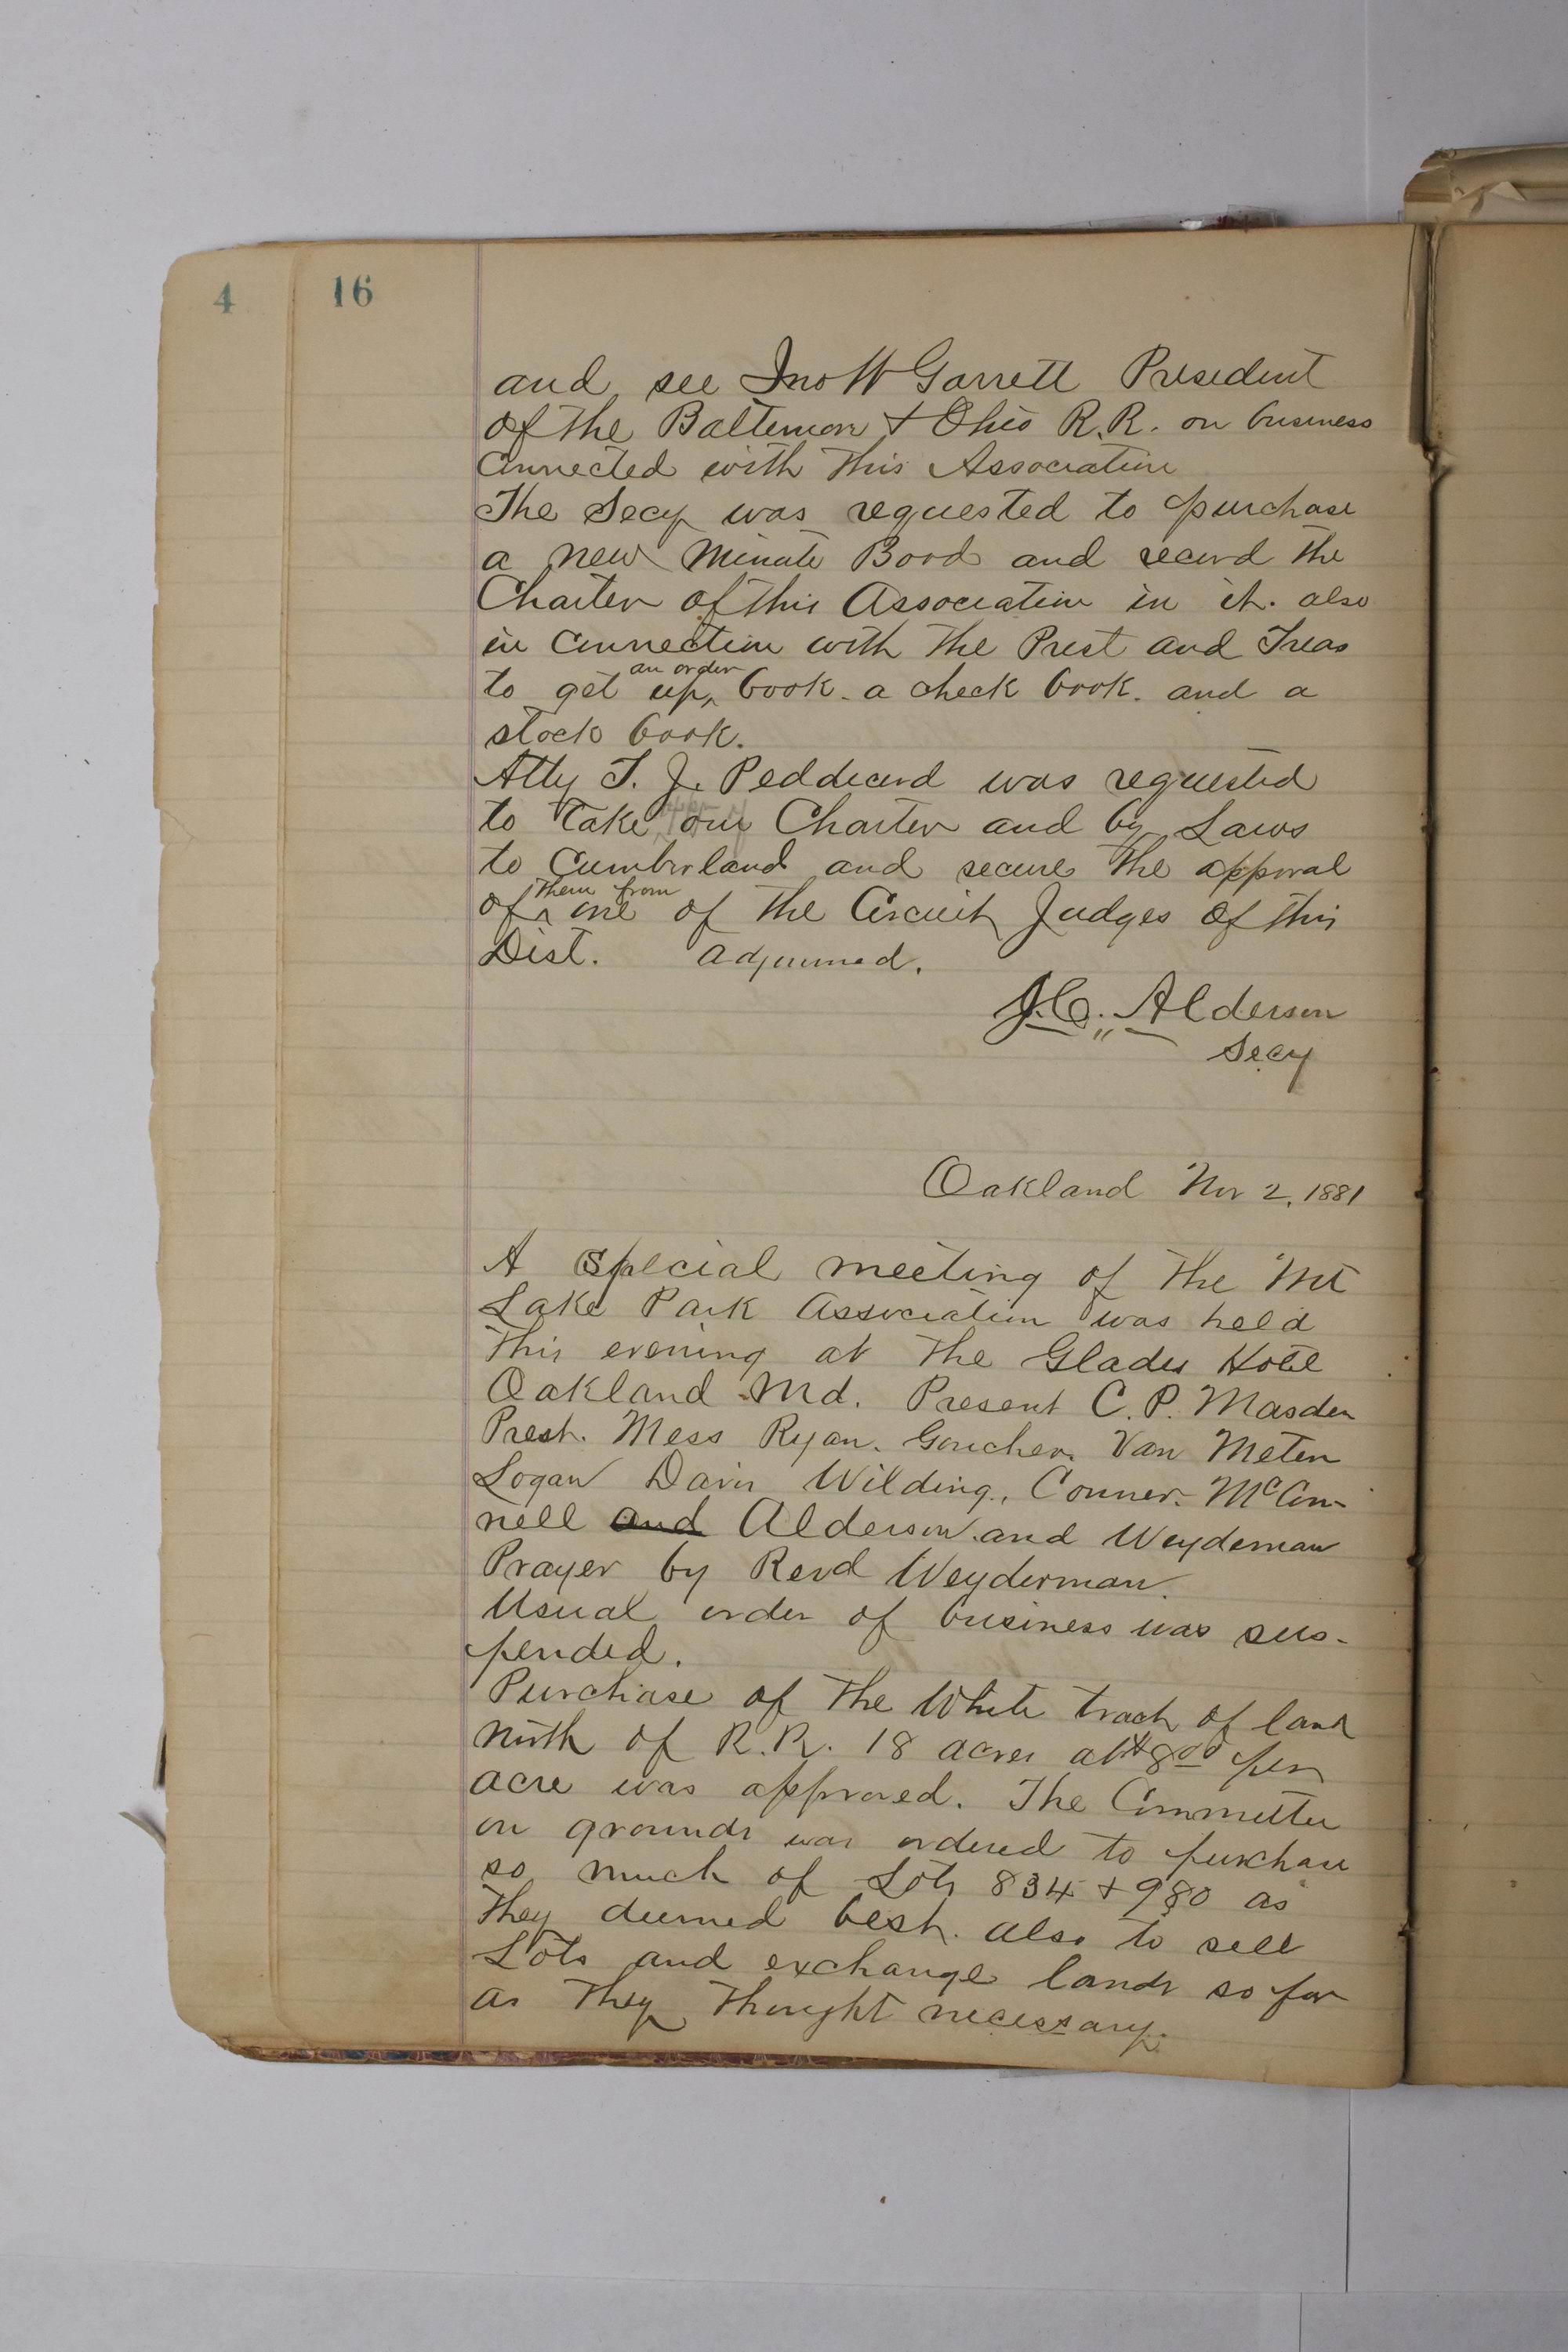 4 16
and see Jno W Garrett President
of the Baltimore + Ohio R.R. on business
connected with this Association
The Secy was requested to purchase
a new Minute Bood and record the
Charter of this Association in it. also
in connection with the Prest and Treas
an order
to get up book. a check book. and a
stock book.
Atty T. J. Peddicord was requested
to take our Charter and by Laws
to Cumberland and secure the approval
them from
of one of the Circuit Judges of this
Dist. adjourned.
J.C. Alderson
Secy
Oakland Nov 2, 1881
A special meeting of the Mt
Lake Park Association was held
this evening at the Glades Hotel
Oakland Md. Present C. P. Masden
Prest. Mess Ryan. Goucher. Van Meter
Logan Davis Wilding, Conner. McCon-
nell and Alderson and Weyderman
Prayer by Revd Weyderman.
Usual order of business was sus-
pended.
Purchase of the White tract of land
North of R.R. 18 acres at $800 per
acre was approved. The Committee
on grounds was ordered to purchase
so much of Lots 834 + 980 as
they deemed best. also to sell
Lots and exchange lands so far
as they thought necessary.